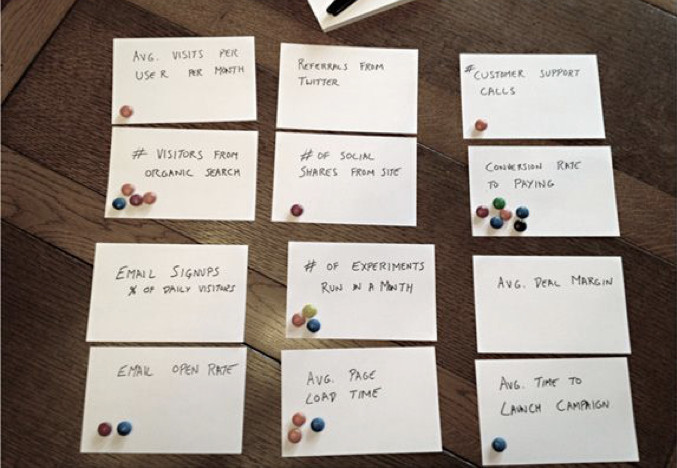 AVG. VISITS PER
USER PER MONTH
REFERRALS FROM
TWITTER
# CUSTOMER SUPPORT
CALLS
# VISITORS FROM
ORGANIC SEARCH
# OF SOCIAL
SHARES FROM SITE
CONVERSION RATE
TO PAYING
EMAIL SIGNUPS
% OF DAILY VISITORS
# OF EXPERIMENTS
RUN IN A MONTH
AVG. DEAL MARGIN
EMAIL OPEN RATE
AVG. PAGE
LOAD TIME
AVG. TIME TO
LAUNCH CAMPAIGN